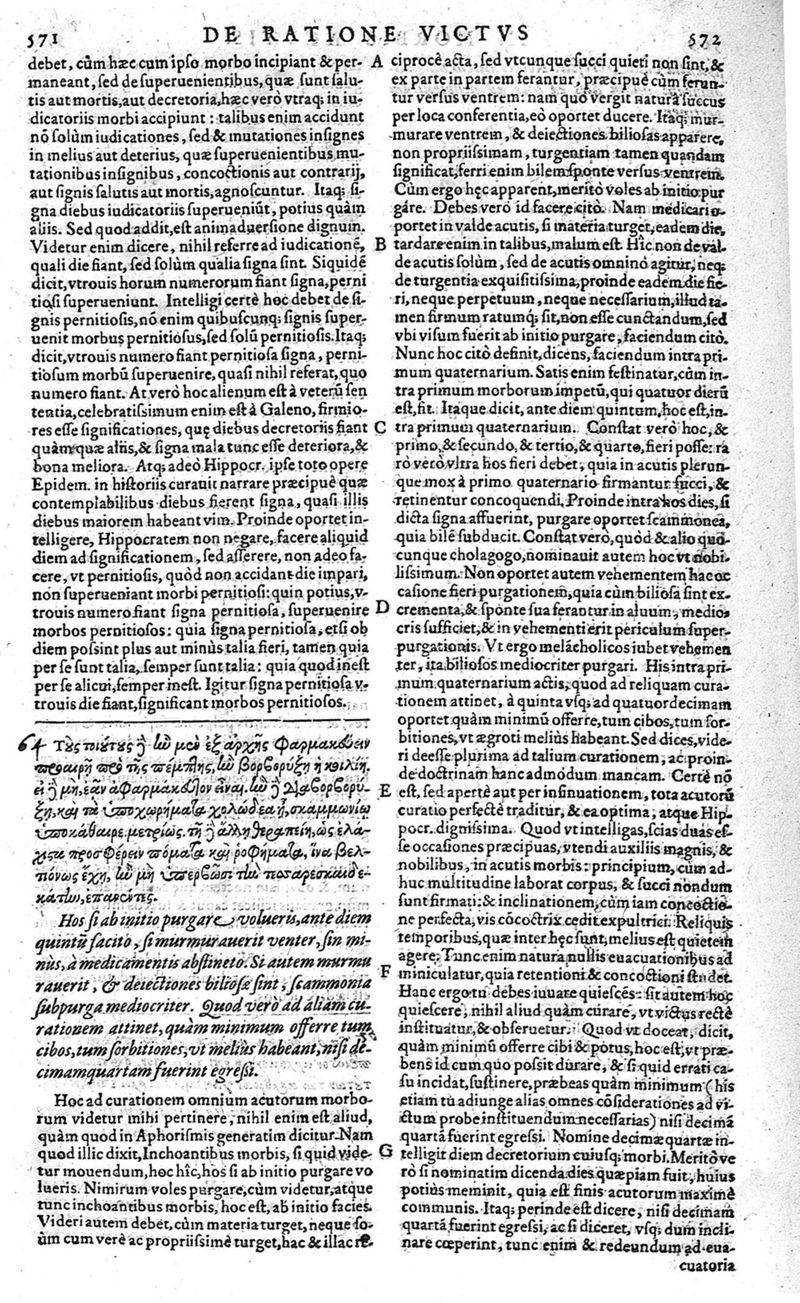 571
DE RATIONE VICTVS
572
debet, cùm hæc cum ipso morbo incipiant & per-
maneant, sed de superuenientibus, quæ sunt salu-
tis aut mortis, aut decretoria, hæc verò vtraq; in iu-
dicatoriis morbi accipiunt: talibus enim accidunt
nõ solùm iudicationes, sed & mutationes insignes
in melius aut deterius, quæ superuenientibus mu-
tationibus insignibus, concoctionis aut contrarij,
aut signis salutis aut mortis, agnoscuntur. Itaq; si-
gna diebus iudicatoriis superueniũt, potius quàm
aliis. Sed quod addit, est animaduersione dignum.
Videtur enim dicere, nihil referre ad iudicationẽ,
quali die fiant, sed solùm qualia signa sint. Siquidẽ
dicit, vtrouis horum numerorum fiant signa, perni
tiosi superueniunt. Intelligi certè hoc debet de si-
gnis pernitiosis, nõ enim quibuscunq; signis super-
uenit morbus pernitiosus, sed solũ pernitiosis. Itaq;
dicit, vtrouis numero fiant pernitiosa signa, perni-
tiosum morbũ superuenire, quasi nihil referat, quo
numero fiant. At verò hoc alienum est à veterũ sen
tentia, celebratissimum enim est à Galeno, firmio-
res esse significationes, quę diebus decretoriis fiant
quàm quæ aliis, & signa mala tunc esse deteriora, &
bona meliora. Atq; adeò Hippocr. ipse toto opere
Epidem. in historiis curauit narrare præcipuè quæ
contemplabilibus diebus fierent signa, quasi illis
diebus maiorem habeant vim. Proinde oportet in-
telligere, Hippocratem non negare, facere aliquid
diem ad significationem, sed asserere, non adeo fa-
cere, vt pernitiosis, quòd non accidant die impari,
non superueniant morbi pernitiosi: quin potius, v-
trouis numero fiant signa pernitiosa, superuenire
morbos pernitiosos: quia signa pernitiosa, etsi ob
diem possint plus aut minùs talia fieri, tamen quia
per se sunt talia, semper sunt talia: quia quod inest
per se alicui, semper inest. Igitur signa pernitiosa v-
trouis die fiant, significant morbos pernitiosos.
64 Τοὺς τοιούτους ἢν μὲν ἐξ ἀρχῆς φαρμακεύειν
πειραιρῇ πρὸ τῆς πέμπτης, ἢν βορβορύξῃ ἡ κοιλίη,
εἰ ἢ μὴ, ἐᾶν ἀφαρμάκευτον εἶναι. ἢν ἢ διαβορβορύ-
ξῃ, καὶ τὰ ὑποχωρήματα χολώδεα ᾖ, σκαμμωνίῳ
ὑποκάθαιρε μετρίως. τῇ ἢ ἄλλῃ θεραπείῃ, ὡς ἐλά-
χιστα προσφέρειν πόματα καὶ ῥοφήματα, ἵνα βελ-
τιόνως ἔχῃ, ἢν μὴ ὑπερβῶσι τὴν τεσσαρεσκαιδε-
κάτην,
Hos si ab initio purgare volueris, ante diem
quintũ facito, si murmurauerit venter, sin mi-
nùs, à medicamentis abstineto. Si autem murmu
rauerit, & deiectiones biliosæ sint, scammonia
subpurga mediocriter. Quod verò ad aliam cu-
rationem attinet, quàm minimum offerre tum
cibos, tum sorbitiones, vt meliùs habeant, nisi de-
cimamquartam fuerint egressi.
Hoc ad curationem omnium acutorum morbo-
rum videtur mihi pertinere, nihil enim est aliud,
quàm quod in Aphorismis generatim dicitur. Nam
quod illic dixit, Inchoantibus morbis, si quid vide-
tur mouendum, hoc hîc, hos si ab initio purgare vo
lueris. Nimirum voles purgare, cùm videtur, atque
tunc inchoantibus morbis, hoc est, ab initio facies.
Videri autem debet, cùm materia turget, neque so-
lùm cum verè ac propriissimè turget, hac & illac re-
A
B
C
D
E
F
G
ciprocè acta, sed vtcunque succi quieti non sint, &
ex parte in partem ferantur, præcipuè cùm ferun-
tur versus ventrem: nam quò vergit naturâ succus
per loca conferentia, eò oportet ducere. Itaq; mur-
murare ventrem, & deiectiones biliosas apparere,
non propriissimam, turgentiam tamen quandam
significat, ferri enim bilem sponte versus ventrem.
Cùm ergo hęc apparent, meritò voles ab initio pur
gare. Debes verò id facere citò. Nam medicari o-
portet in valde acutis, si materia turget, eadem die,
tardare enim in talibus, malum est. Hîc non de val-
de acutis solùm, sed de acutis omninò agitur, neq;
de turgentia exquisitissima, proinde eadem die fie-
ri, neque perpetuum, neque necessarium, illud ta-
men firmum ratumq; sit, non esse cunctandum, sed
vbi visum fuerit ab initio purgare, faciendum citò.
Nunc hoc citò definit, dicens, faciendum intra pri-
mum quaternarium. Satis enim festinatur, cùm in-
tra primum morborum impetũ, qui quatuor dierũ
est, fit. Itaque dicit, ante diem quintum, hoc est, in-
tra primum quaternarium. Constat verò hoc, &
primo, & secundo, & tertio, & quarto, fieri posse: ra
rò verò vltra hos fieri debet, quia in acutis plerun-
que mox à primo quaternario firmantur succi, &
retinentur concoquendi. Proinde intra hos dies, si
dicta signa affuerint, purgare oportet scammonea,
quia bilẽ subducit. Constat verò, quòd & alio quo-
cunque cholagogo, nominauit autem hoc vt nobi-
lissimum. Non oportet autem vehementem hac oc
casione fieri purgationem, quia cùm biliosa sint ex-
crementa, & sponte sua ferantur in aluum, medio-
cris sufficiet, & in vehementi erit periculum super-
purgationis. Vt ergo melãcholicos iubet vehemen
ter, ita biliosos mediocriter purgari. His intra pri-
mum quaternarium actis, quod ad reliquam cura-
tionem attinet, à quinta vsq; ad quatuordecimam
oportet quàm minimũ offerre, tum cibos, tum sor-
bitiones, vt ægroti meliùs habeant. Sed dices, vide-
ri deesse plurima ad talium curationem, ac proin-
de doctrinam hanc admodum mancam. Certè nõ
est, sed apertè aut per insinuationem, tota acutorũ
curatio perfectè traditur, & ea optima, atque Hip-
pocr. dignissima. Quod vt intelligas, scias duas es-
se occasiones præcipuas, vtendi auxiliis magnis, &
nobilibus, in acutis morbis: principium, cùm ad-
huc multitudine laborat corpus, & succi nondum
sunt firmati: & inclinationem, cùm iam concoctio-
ne perfecta, vis cõcoctrix cedit expultrici. Reliquis
temporibus, quæ inter hęc sunt, melius est quietem
agere: Tunc enim natura nullis euacuationibus ad
miniculatur, quia retentioni & concoctioni studet.
Hanc ergo tu debes iuuare quiescẽs: sit autem hoc
quiescere, nihil aliud quàm curare, vt victus rectè
instituatur, & obseruetur. Quod vt doceat, dicit,
quàm minimũ offerre cibi & potus, hoc est, vt præ-
bens id cum quo possit durare, & si quid errati ca-
su incidat, sustinere, præbeas quàm minimum (his
etiam tu adiunge alias omnes cõsiderationes ad vi-
ctum probe instituendum necessarias) nisi decimã
quartã fuerint egressi. Nomine decimæquartæ in-
telligit diem decretorium cuiusq; morbi. Meritò ve
rò si nominatim dicenda dies quæpiam fuit, huius
potiùs meminit, quia est finis acutorum maximè
communis. Itaq; perinde est dicere, nisi decimam
quartã fuerint egressi, ac si diceret, vsq; dum incli-
nare cœperint, tunc enim & redeundum ad eua-
cuatoria